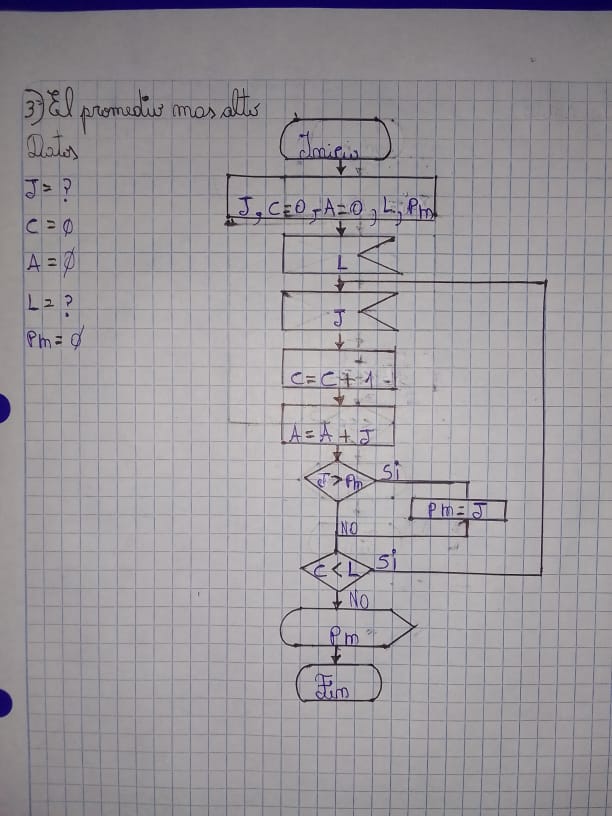 3) El promedio mas alto
Datos
J = ?
C = 0
A = 0
L = ?
Pm = 0
Inicio
J, C=0, A=0, L, Pm
L
J
C = C + 1
A = A + J
J > Pm
Si
Pm = J
NO
C < L
Si
NO
Pm
Fin